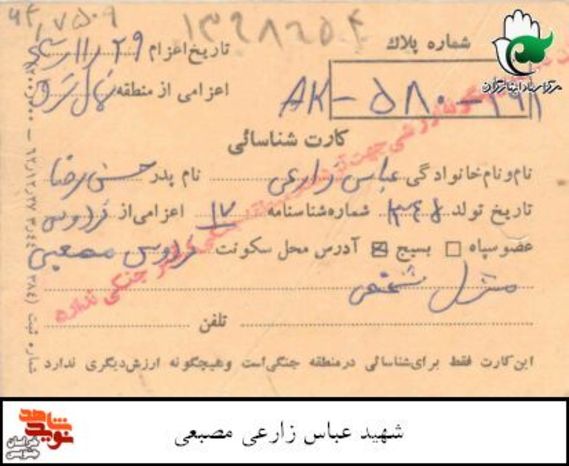 ۱۳۹۸۲۵۴
شماره پلاك
تاریخ اعزام ۲۹
AK-۵۸۰-۲۹۸
اعزامی از منطقه شمال شرق
مرکز اسناد ایثارگران
کارت شناسائی
نام و نام خانوادگی عباس زارعی نام پدر حسن رضا
تاریخ تولد ۱۳۴۸ شماره شناسنامه ۱۷ اعزامی از فردوس
عضو سپاه □ بسیج ☒ آدرس محل سکونت فردوس مصعبی
منزل شخصی
تلفن
این کارت فقط برای شناسائی در منطقه جنگی است و هیچگونه ارزش دیگری ندارد
شهید عباس زارعی مصبعی
نوید شاهد
خراسان جنوبی